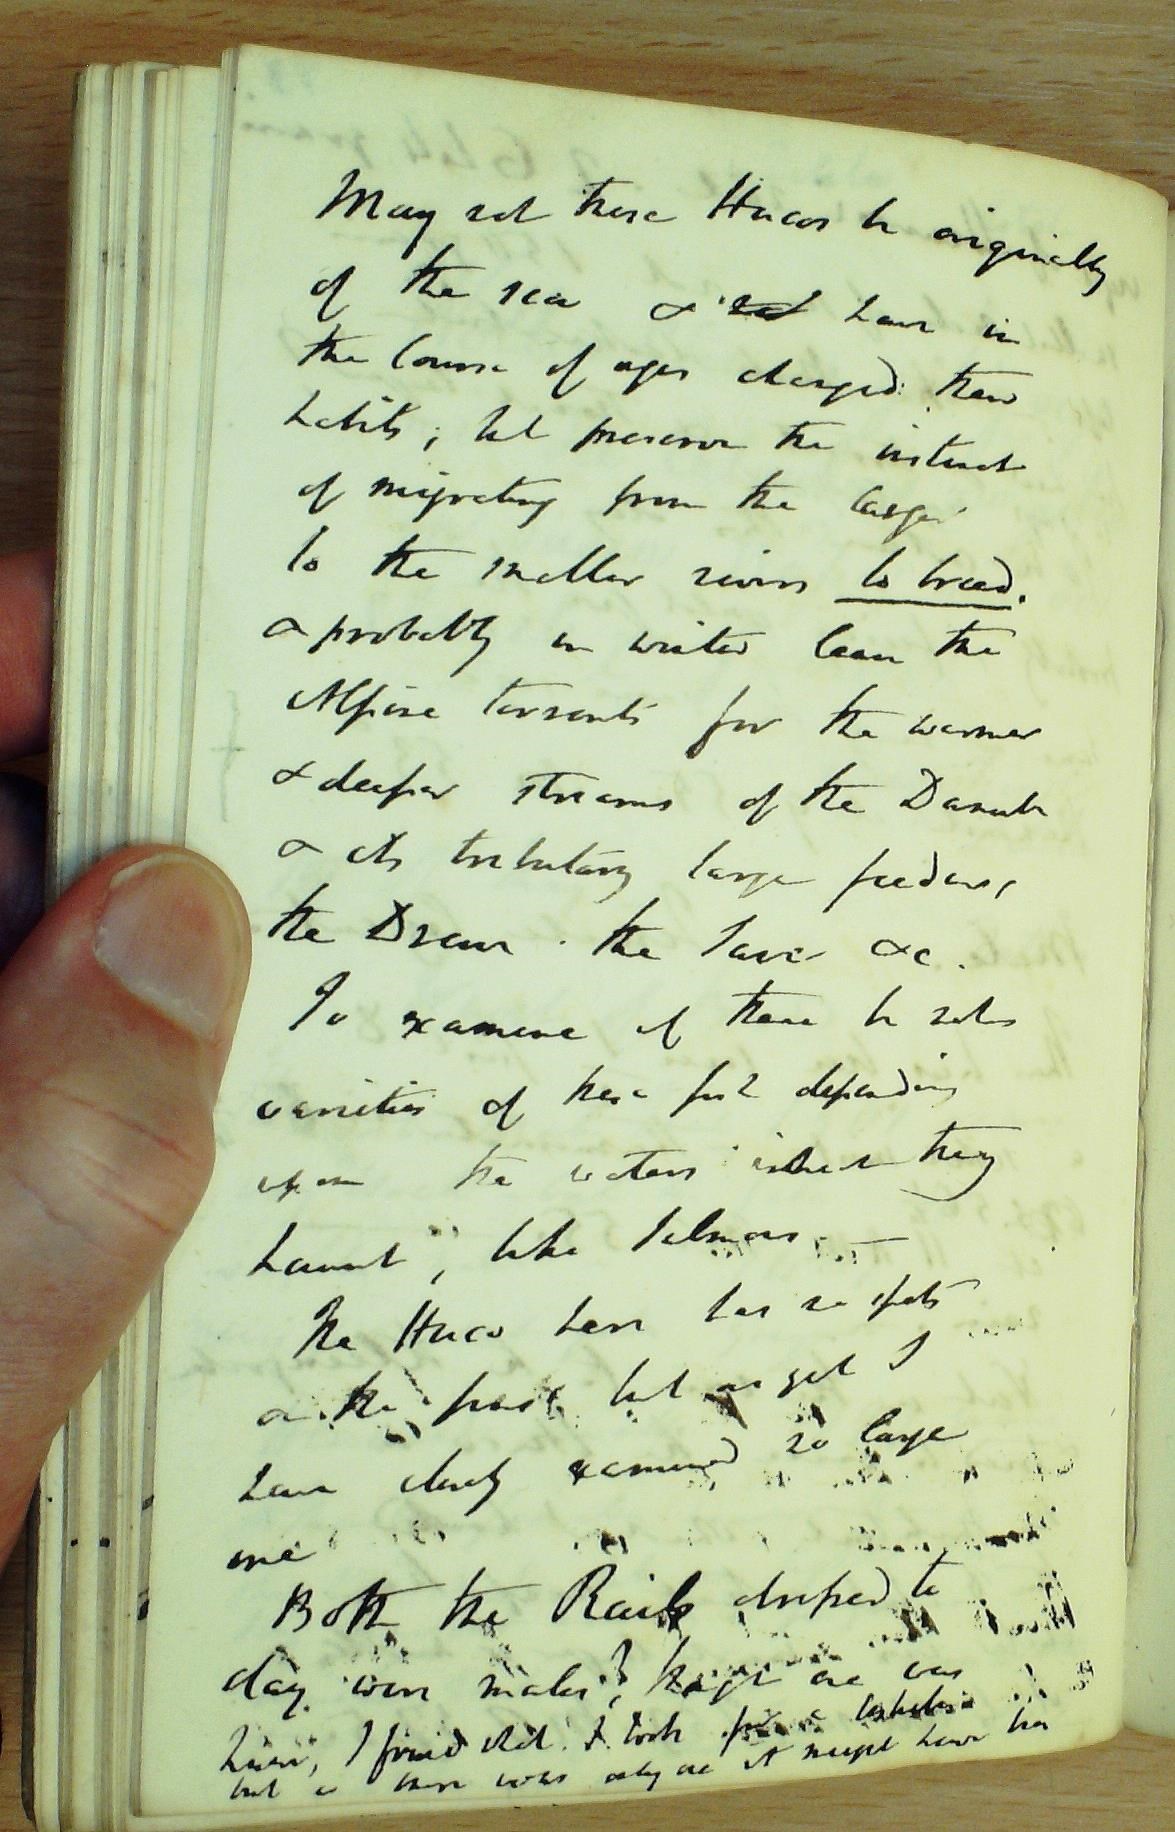 May not these Hucos be originally
of the sea & not have in
the course of ages changed their
habits; but preserve the instinct
of migrating from the larger
to the smaller rivers to breed.
& probably in winter leave the
Alpine torrents for the warmer
& deeper streams of the Danube
& its tributary large feeders,
the Drave. the Save &c.
To examine if there be not
varieties of these fish depending
upon the waters they
haunt, like Salmons —
The Huco here has no spots
on the but as yet I
have closely examined no large
one
Both the Rails to
day were males; one was
here, I found I took for a
but as there was only one it might have been